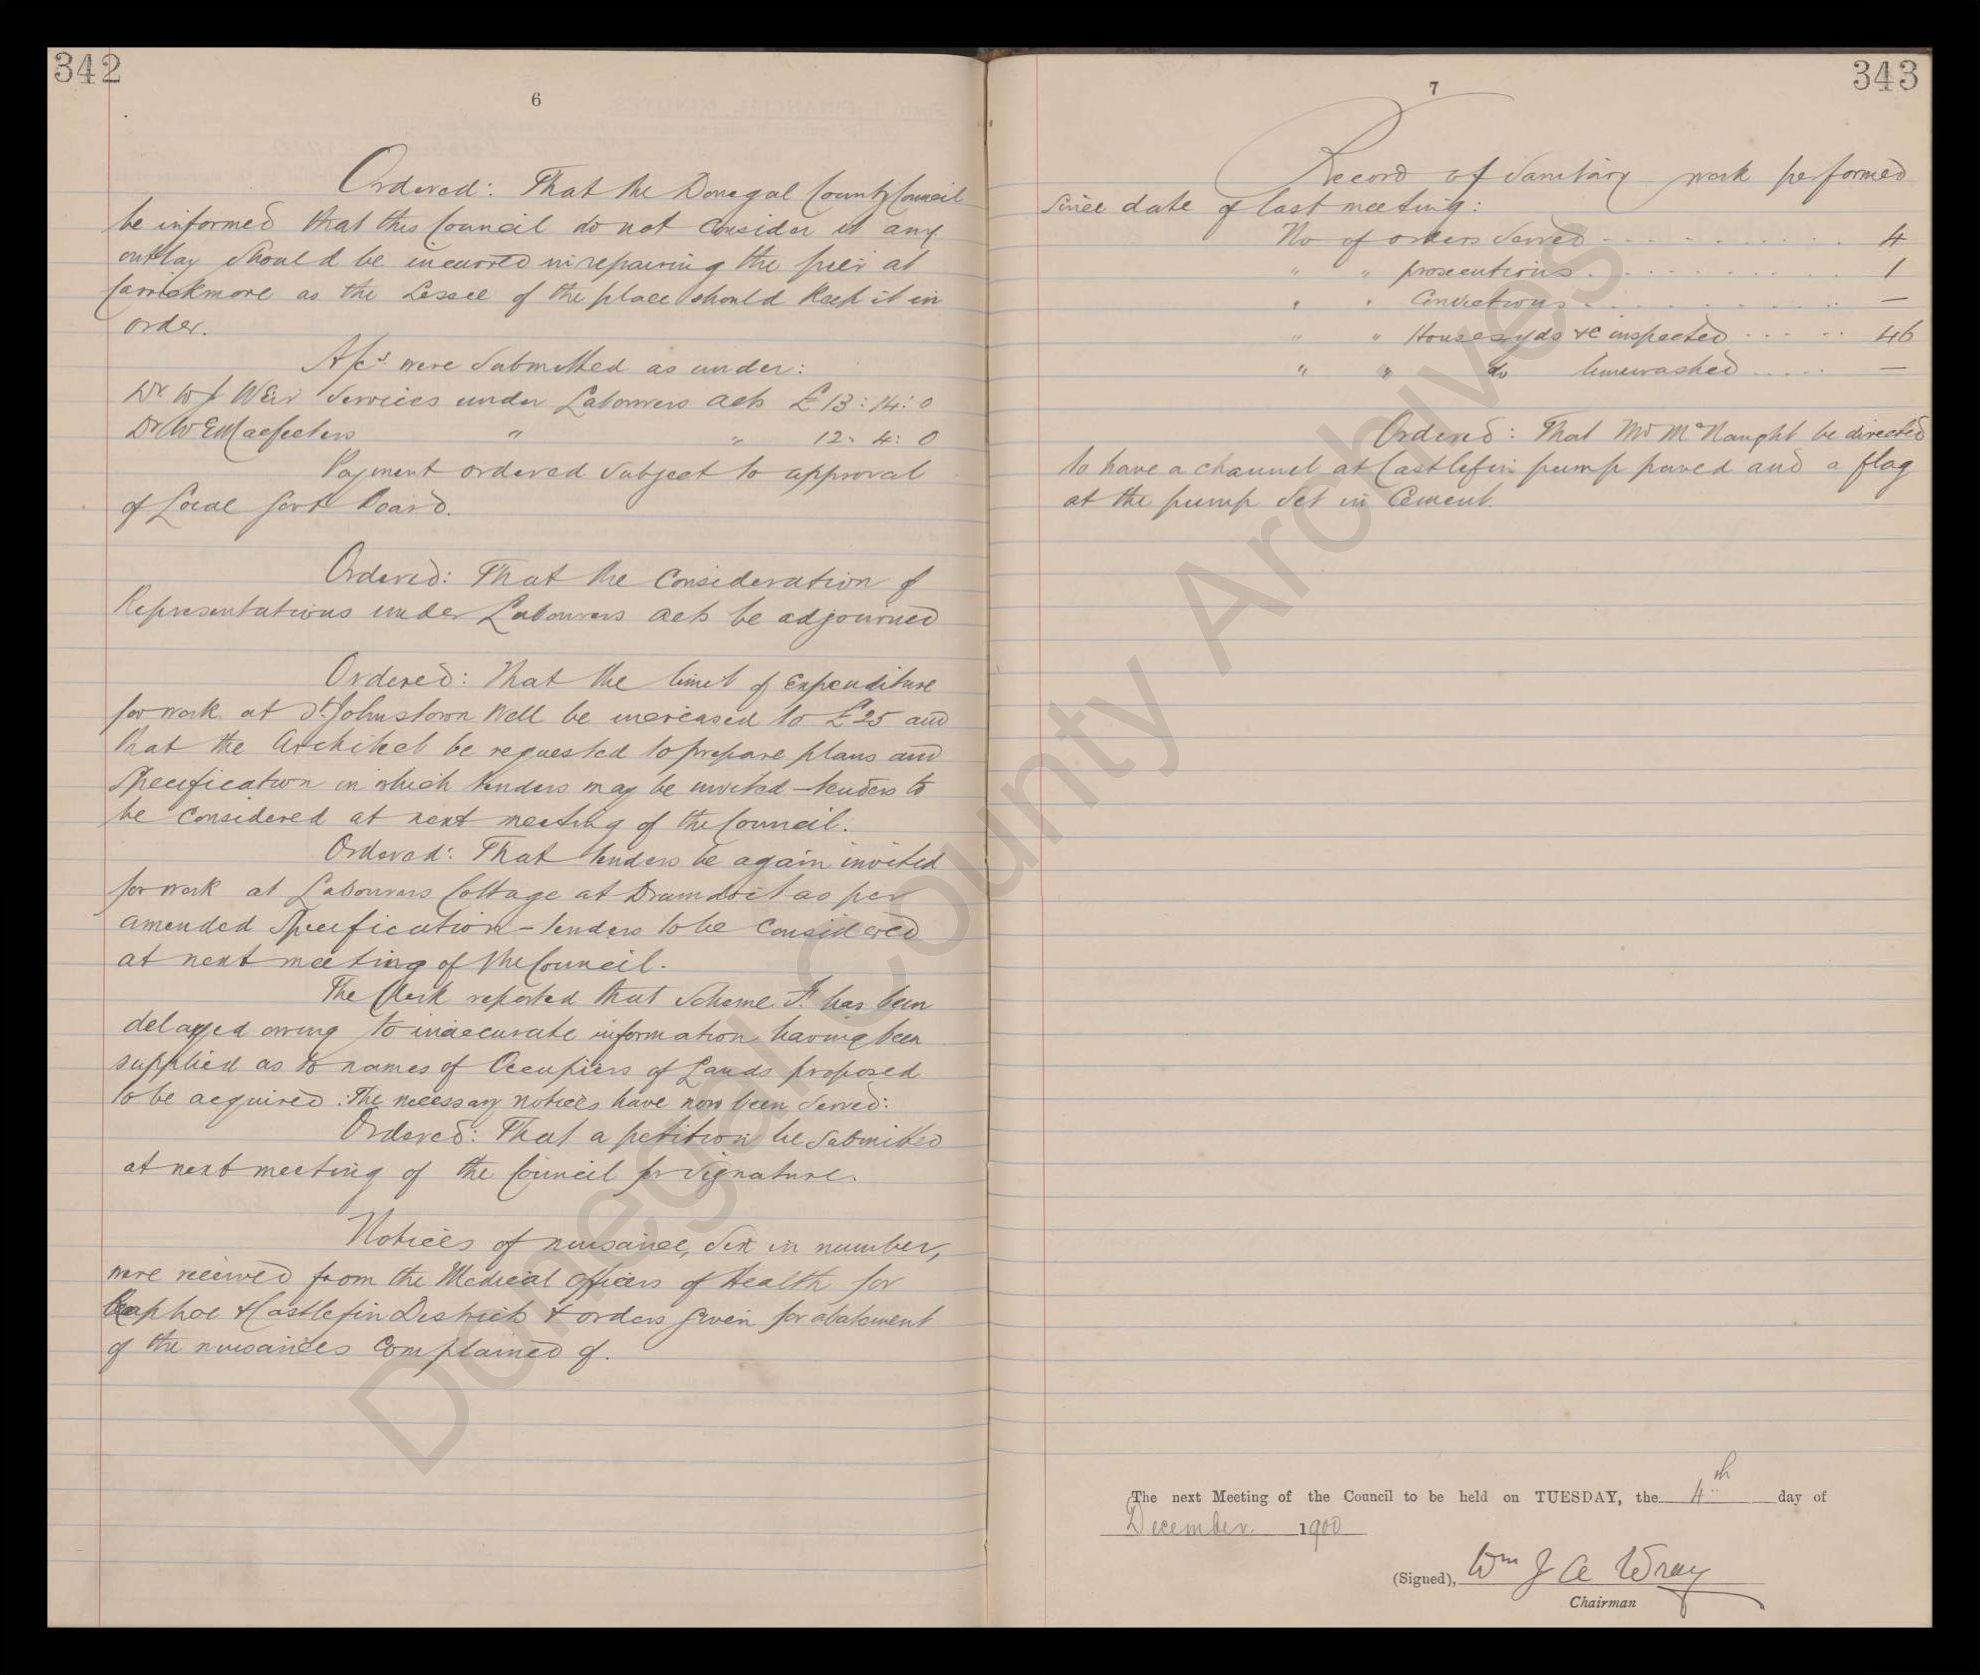 342
6
Ordered: That the Donegal County Council
be informed that this Council do not consider it any
outlay should be incurred in repairing the pier at
Carrickmore as the Lessee of the place should keep it in
order.
A/cs were submitted as under:
Dr W J Weir Services under Labourers Acts £13:14:0
Dr W E Macfeeters " " 12: 4: 0
Payment ordered subject to approval
of Local Govt Board.
Ordered: That the Consideration of
Representations under Labourers Acts be adjourned
Ordered: That the limit of Expenditure
for work at St Johnstown Well be increased to £25 and
that the Architect be requested to prepare plans and
Specification on which tenders may be invited – tenders to
be considered at next meeting of the Council.
Ordered: That tenders be again invited
for work at Labourers Cottage at Drumdoit as per
amended Specification – tenders to be Considered
at next meeting of the Council.
The Clerk reported that Scheme has been
delayed owing to inaccurate information having been
supplied as to names of Occupiers of Lands proposed
to be acquired: The necessary notices have now been served:
Ordered: That a petition be submitted
at next meeting of the Council for signature.
Notices of nuisance, six in number,
were received from the Medical Officers of Health for
Raphoe & Castlefin Districts & orders given for abatement
of the nuisances complained of.
343
7
Record of Sanitary work performed
since date of last meeting:
No of orders served 4
" " prosecutions 1
" " Convictions —
" " Houses yds &c inspected 46
" " do limewashed —
Ordered: That Mr McNaught be directed
to have a channel at Castlefin pump paved and a flag
at the pump set in Cement.
The next Meeting of the Council to be held on TUESDAY, the 4th day of
December 1900
(Signed), Wm J A Wray
Chairman
Donegal County Archives